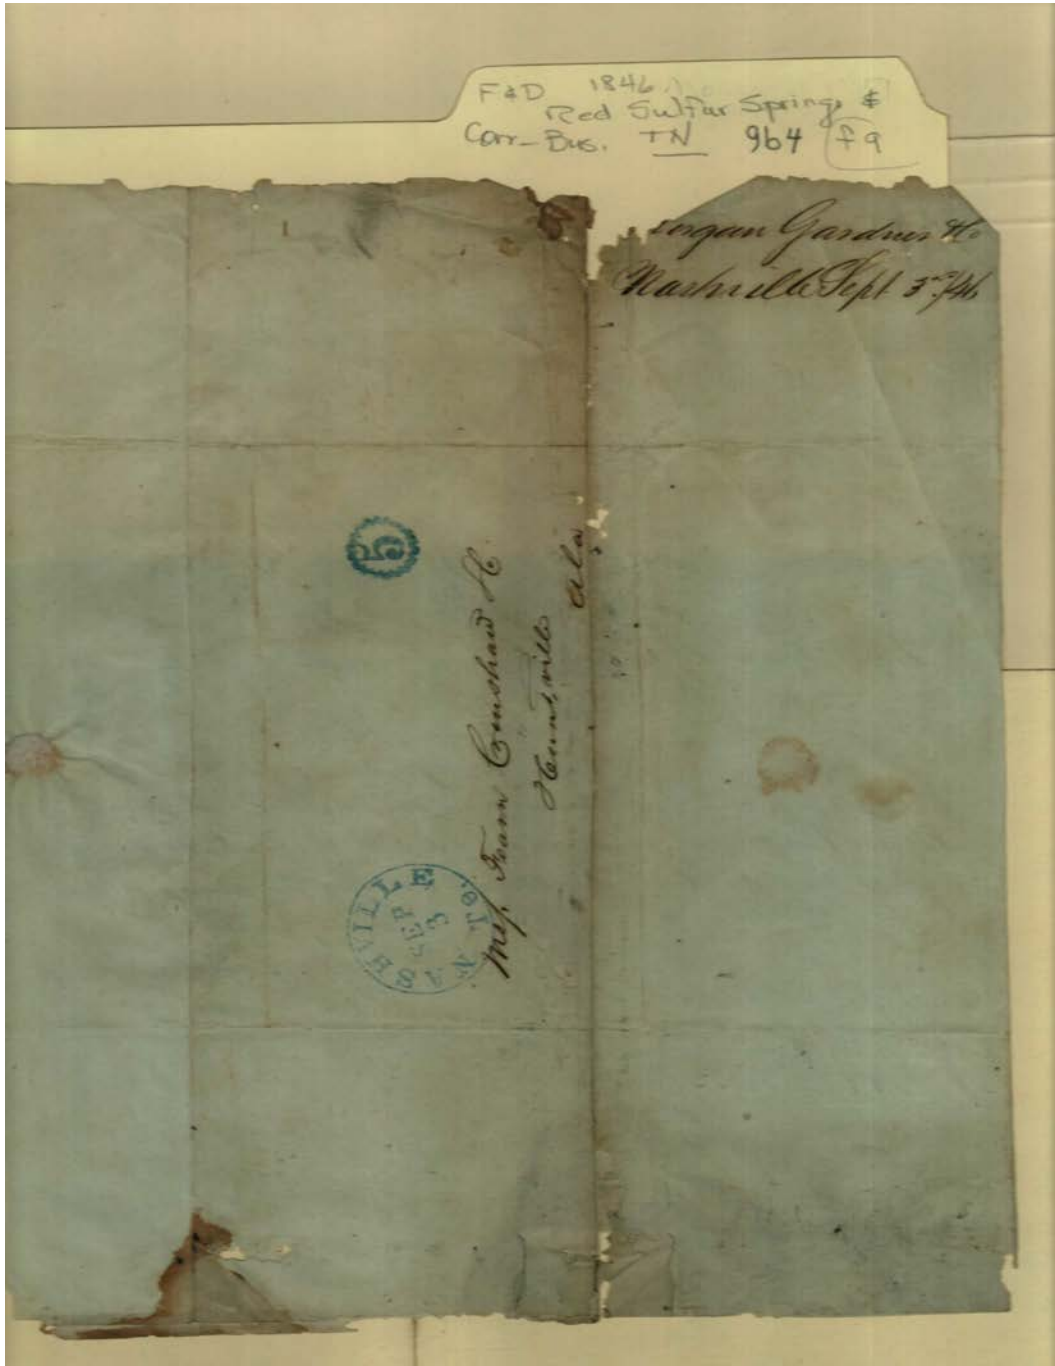 F&D 1846
Red Sulfur Springs &
Corr-Bus. TN 964 f9
organ Gardner & Co
Nashville Sept 3rd/46
5
Mess. Fearn Crenshaw & C
Huntsville
Ala
NASHVILLE Te.
SEP
3